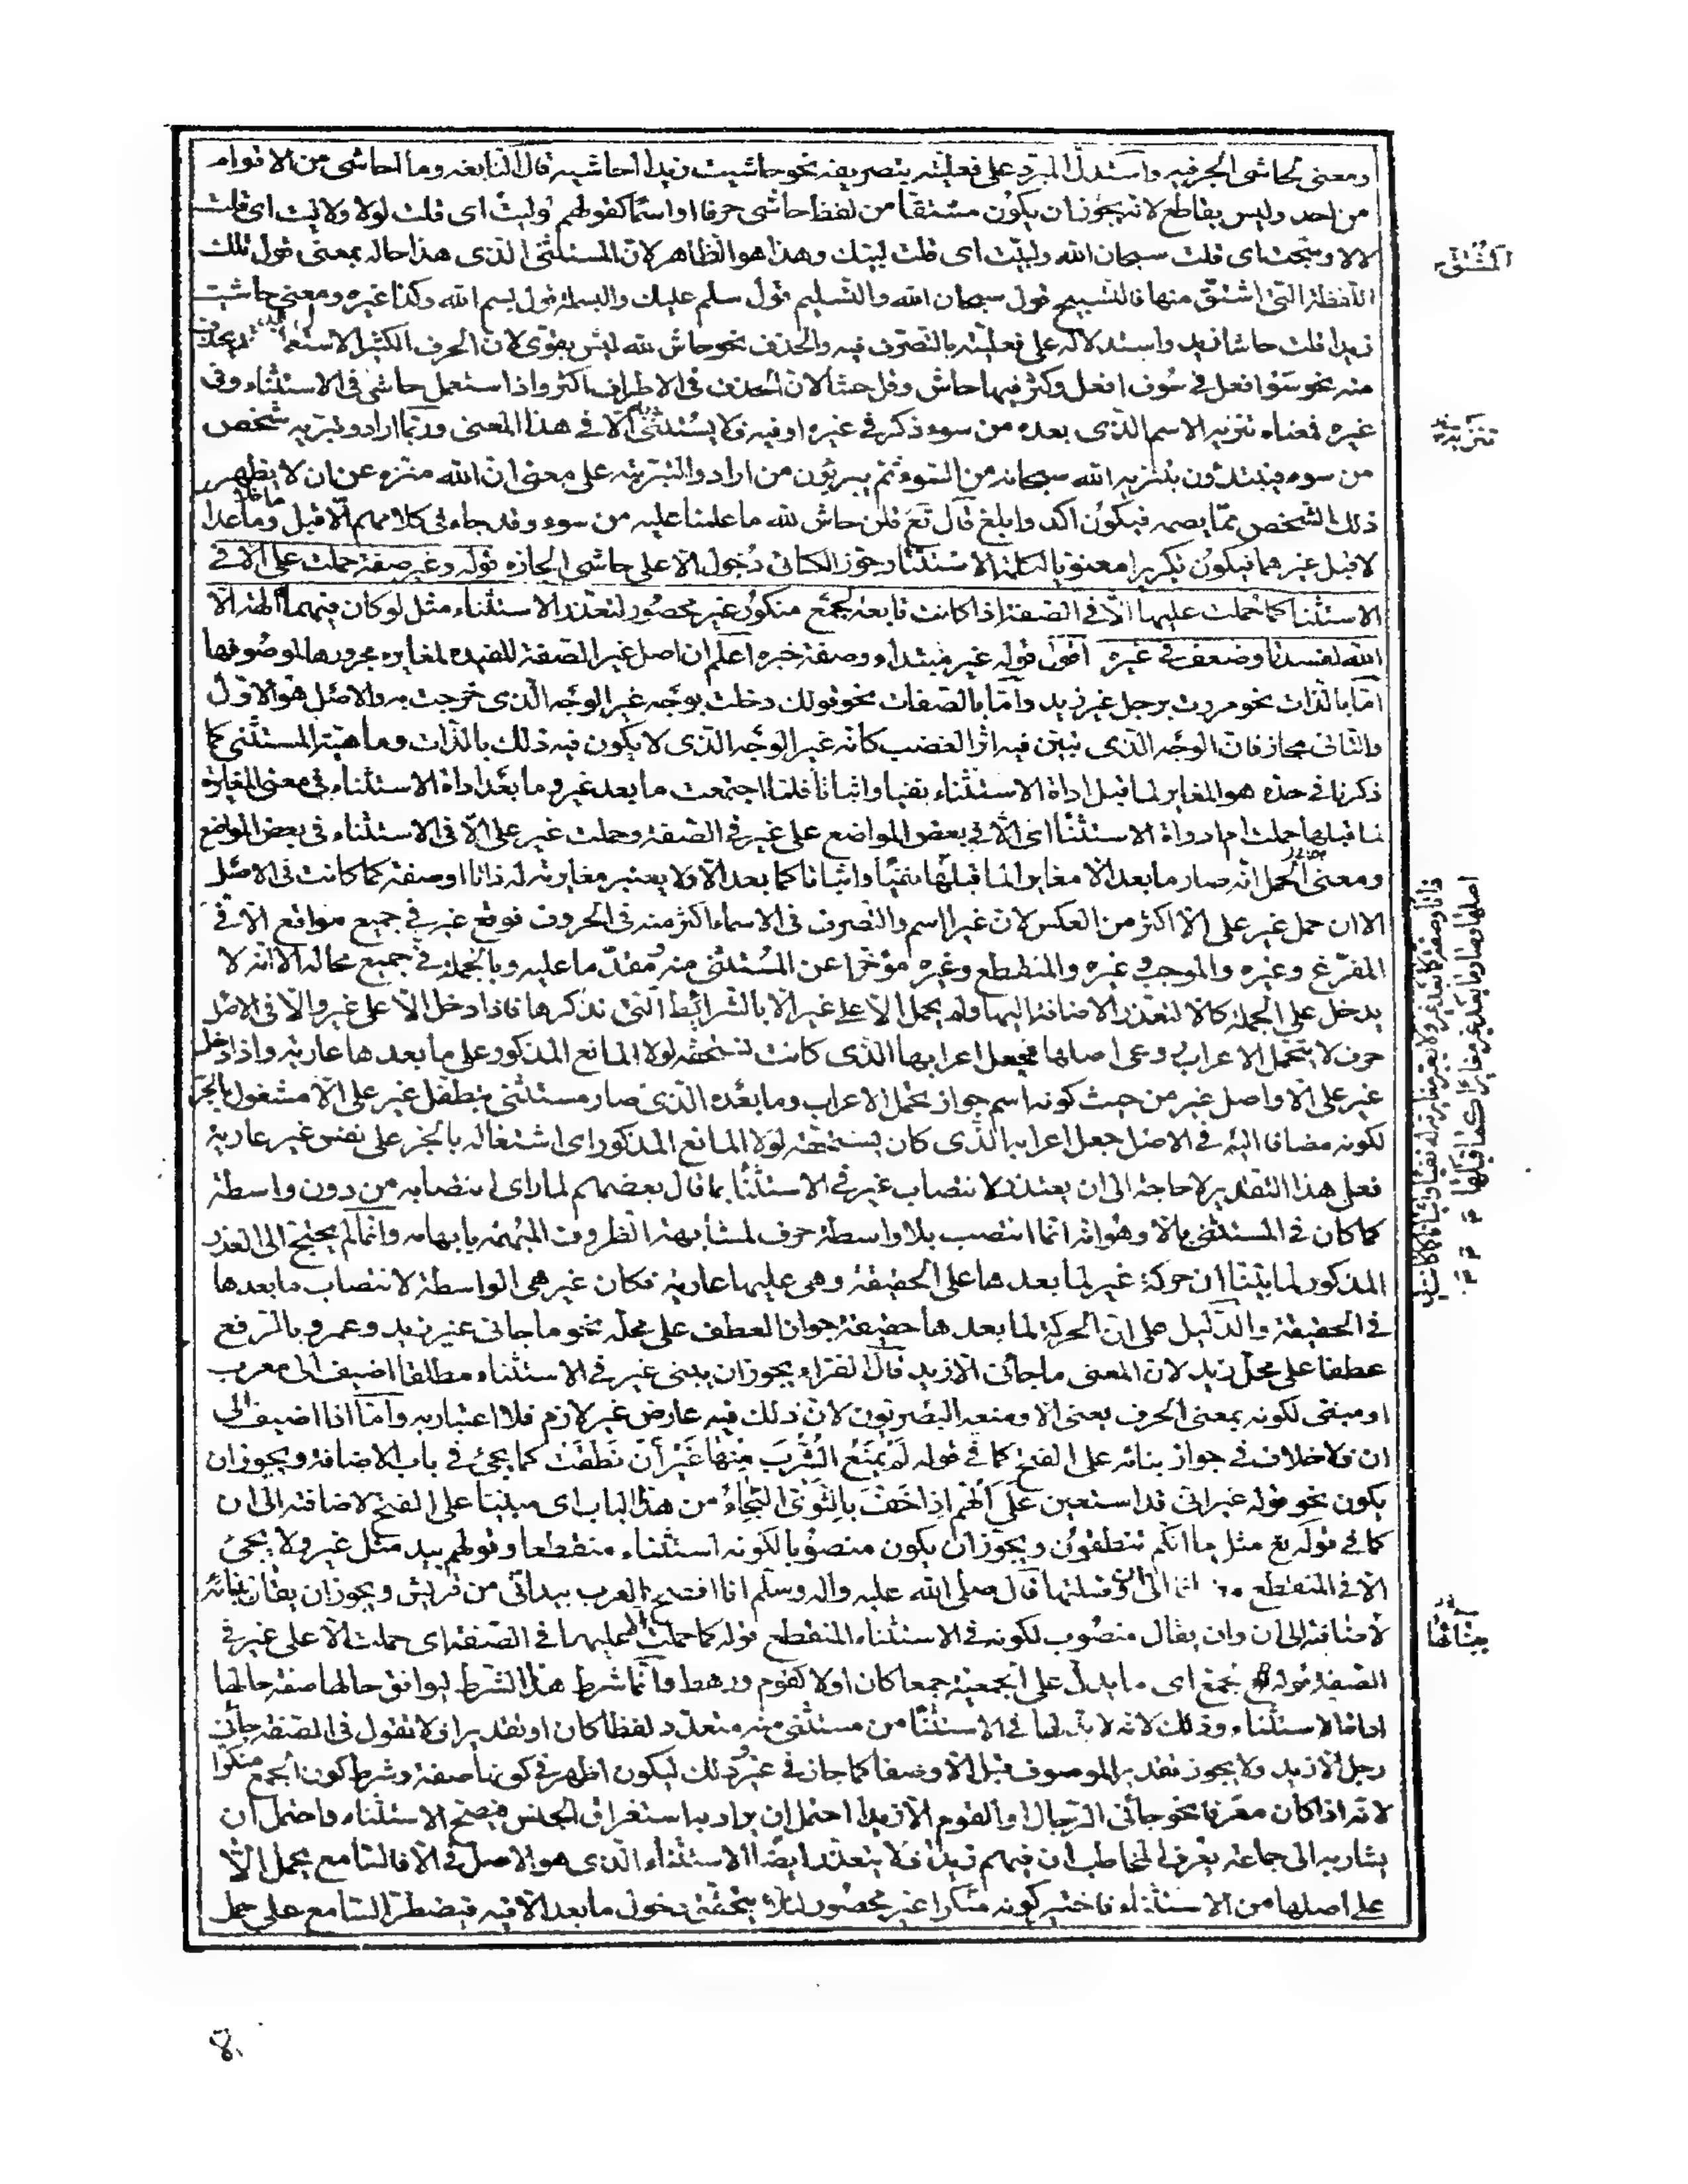 ومعنى لحاشى الجر فيه واستدل المبرد على فعليته بتصريفه نحو حاشيت زيدا احاشيه قال النابغه وما احاشى من الاقوام
من احد وليس بقاطع لانه يجوز ان يكون مشتقا من لفظ حاشى حرفا او اسما كقولهم لوليت اى قلت لولا ولاليت اى قلت
لالا وسبحت اى قلت سبحان الله ولبيت اى قلت لبيك وهذا هو الظاهر لان المشتق الذى هذا حاله بمعنى قول تلك
اللفظة التى اشتق منها فالتسبيح قول سبحان الله والتسليم قول سلم عليك والبسملة قول بسم الله وكذا غيره ومعنى حاشيت
زيدا قلت حاشا زيد واستدلاله على فعليته بالتصرف فيه والحذف نحو حاش لله ليس بقوى لان الحرف الكثير الاستعمال قد يحذف
منه نحو سوافعل فى سوف افعل وكثر فيها حاش وقل حشا لان الحذف فى الاطراف اكثر واذا استعمل حاشى فى الاستثناء وفى
غيره فمعناه تنزيه الاسم الذى بعده من سوء ذكر فى غيره او فيه فلا يستثنى به الا فى هذا المعنى وربما ارادوا تبرية شخص
من سوء فيبتدؤن بتنزيه الله سبحانه من السوء ثم يبرؤن من ارادوا تبرئته على معنى ان الله منزه عن ان لا يطهر
ذلك الشخص مما يصمه فيكون اكد وابلغ قال تع قلن حاش لله ما علمنا عليه من سوء وقد جاء فى كلامهم الا قبل ما خلا وما عدا
لا قبل غيرهما فيكون تكريرا معنويا لكلمة الاستثنا وجوز الكسائى دخول الا على حاشى الجارة قوله وغير صفة حملت على الا فى
الاستثنا كما حملت عليها الا فى الصفة اذا كانت تابعة لجمع منكور غير محصور لتعذر الاستثناء مثل لو كان فيهما الهة الا
الله لفسدتا وضعف فى غيره اقول قوله غير مبتداء وصفة خبره اعلم ان اصل غير الصفة المفيدة لمغايرة مجرورها لموصوفها
اما بالذات نحو مررت برجل غير زيد واما بالصفات نحو قولك دخلت بوجه غير الوجه الذى خرجت به والاصل هو الاول
والثانى مجاز فان الوجه الذى تبين فيه اثر الغضب كانه غير الوجه الذى لا يكون فيه ذلك بالذات وماهية المستثنى كما
ذكرنا فى حده هو المغاير لما قبل اداة الاستثناء نفيا واثباتا فلما اجتمعت ما بعد غير وما بعد اداة الاستثناء فى معنى المغايرة
لما قبلها حملت ام ادواة الاستثنا اى الا فى بعض المواضع على غير فى الصفة وحملت غير على الا فى الاستثناء فى بعض المواضع
ومعنى الحمل انه صار ما بعد الا مغايرا لما قبلها نفيا واثباتا كما بعد الا ولا يعتبر مغايرته له ذاتا او صفة كما كانت فى الاصل
الا ان حمل غير على الا اكثر من العكس لان غير اسم والتصرف فى الاسماء اكثر منه فى الحروف فوقع غير فى جميع مواقع الا فى
المفرغ وغيره والموجب وغيره والمنقطع وغيره مؤخرا عن المستثنى منه ومقدما عليه وبالجملة فى جميع محاله الا انه لا
يدخل على الجملة كالا لتعذر الاضافة اليها ولم يحمل الا على غير الا بالشرائط التى نذكرها فاذا دخل الا على غير والا فى الاصل
حرف لا يتحمل الاعراب وعى اصلها فجعل اعرابها الذى كانت تستحقه لولا المانع المذكور على ما بعدها عارية واذا دخل
غير على الا واصل غير من حيث كونه اسم جواز تحمل الاعراب وما بعده الذى صار مستثنى بتطفل غير على الا مشغول بالجر
لكونه مضافا اليه فى الاصل جعل اعرابه الذى كان يستحقه لولا المانع المذكور اى اشتغاله بالجر على نفس غير عارية
فعلى هذا التقدير لا حاجة الى ان يعتذر لانتصاب غير فى الاستثنا بما قال بعضهم لما راى انتصابه من دون واسطة
كما كان فى المستثنى بالا وهو انه انما انتصب بلا واسطة حرف لمشابهة الظروف المبهمة بابهامه وانما لم يحتج الى العذر
المذكور لما بيّنا ان حركة غير لما بعدها على الحقيقة وهى عليها عارية فكان غير هى الواسطة لانتصاب ما بعدها
فى الحقيقة والدليل على ان الحركة لما بعدها حقيقة جواز العطف على محله نحو ما جانى غير زيد وعمرو بالرفع
عطفا على محل زيد لان المعنى ما جائنى الا زيد قال الفراء يجوز ان يبنى غير فى الاستثناء مطلقا اضيف الى معرب
او مبنى لكونه بمعنى الحرف يعنى الا ومنعه البصريون لان ذلك فيه عارض غير لازم فلا اعتبار به واما اذا اضيف الى
ان فلا خلاف فى جواز بنائه على الفتح كما فى قوله لم يمنع الشرب منها غير أن نطقت كما يجئ فى باب الاضافة ويجوز ان
يكون نحو قوله غير انى قد استعين على الهم اذا خف بالثوى النجاء من هذا الباب اى مبنيا على الفتح لاضافته الى ان
كما فى قوله تع مثل ما انكم تنطقون ويجوز ان يكون منصوبا لكونه استثناء منقطعا وقولهم بيد مثل غير ولا يجئ
الا فى المنقطع مضافا الى ان وصلتها قال صلى الله عليه واله وسلم انا افصح العرب بيد انى من قريش ويجوز ان يقال ببنائه
لاضافته الى ان وان يقال منصوب لكونه فى الاستثناء المنقطع قوله كما حملت الا عليها فى الصفة اى حملت الا على غير فى
الصفة قوله لجمع اى ما يدل على الجمعية جمعا كان اولا كقوم ورهط وانما شرط هذا الشرط ليوافق حالها صفة حالها
اداة الاستثناء وذلك لانه لا بد لها فى الاستثنا من مستثنى منه متعدد لفظا كان او تقديرا فلا تقول فى الصفة جائنى
رجل الا زيد ولا يجوز تقدير الموصوف قبل الا وصفا كما جاز فى غير وذلك ليكون اظهر فى كونها صفة وشرط كون الجمع منكرا
لانه اذا كان معرفا نحو جائنى الرجال او القوم الا زيدا احتمل ان يراد به استغراق الجنس فيصح الاستثناء واحتمل ان
يشار به الى جماعة يعرف المخاطب ان فيهم زيدا فلا يتعذر ايضا الاستثناء الذى هو الاصل فى الا فالسامع يحمل الا
على اصلها من الاستثناء فاختير كونه منكرا غير محصور لئلا يتحقق دخول ما بعد الا فيه فيضطر السامع على حمل
المشتق
تنزيه
اصلها وصار ما بعد غير مغايرا لما قبلها
ذاتا وصفة كما بعد غير ولا يعتبر مغايرته له نفيا واثباتا كما كانت فى
ببنائها